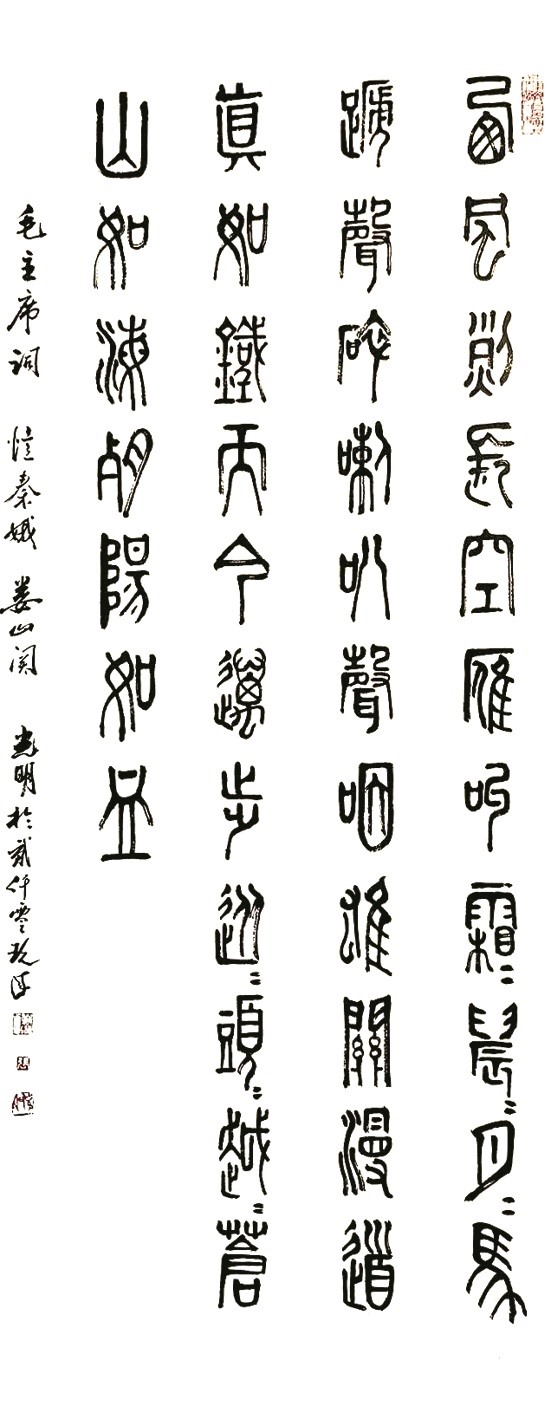 西風烈長空雁叫霜〓晨〓月〓馬
蹏聲碎喇叭聲咽雄關漫道
真如鐵而今邁步從〓頭〓越〓蒼
山如海殘陽如血
毛主席词 憶秦娥 娄山关 光明於贰仟零玖年